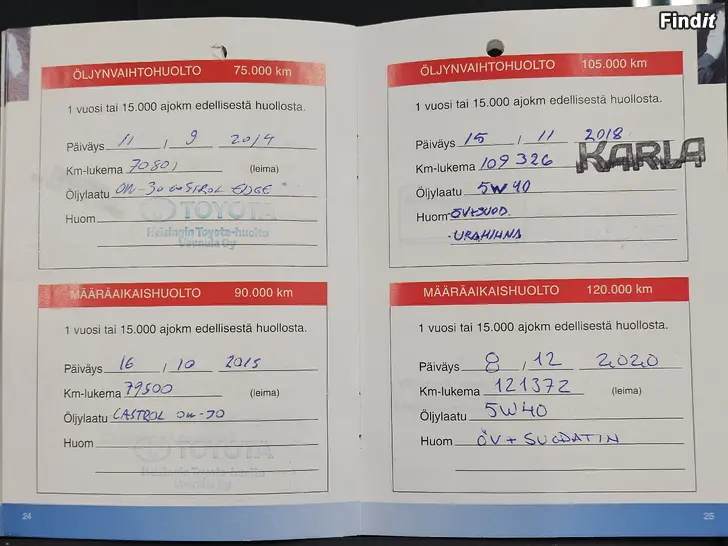 Findit
ÖLJYNVAIHTOHUOLTO 75.000 km
1 vuosi tai 15.000 ajokm edellisestä huollosta.
Päiväys 11 / 9 2014
Km-lukema 70801 (leima)
Öljylaatu 0W-30 CASTROL EDGE
Huom
TOYOTA
Helsingin Toyota-huolto
Uusmaa Oy
MÄÄRÄAIKAISHUOLTO 90.000 km
1 vuosi tai 15.000 ajokm edellisestä huollosta.
Päiväys 16 / 10 2015
Km-lukema 79500 (leima)
Öljylaatu CASTROL 0W-30
Huom
TOYOTA
24
ÖLJYNVAIHTOHUOLTO 105.000 km
1 vuosi tai 15.000 ajokm edellisestä huollosta.
Päiväys 15 / 11 2018
Km-lukema 109326 KARLA
Öljylaatu 5W40
Huom ÖV+SUOD.
URAHIHNA
MÄÄRÄAIKAISHUOLTO 120.000 km
1 vuosi tai 15.000 ajokm edellisestä huollosta.
Päiväys 8 / 12 2020
Km-lukema 121372 (leima)
Öljylaatu 5W40
Huom ÖV + SUODATIN
25